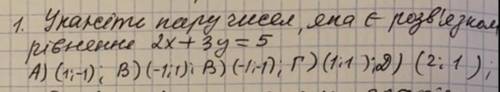 1. Укажіть пару чисел, яка є розв'язком
рівнення 2x+3y=5
А) (1;-1); В) (-1;1); В) (-1;-1); Г) (1;1); Д) (2;1);